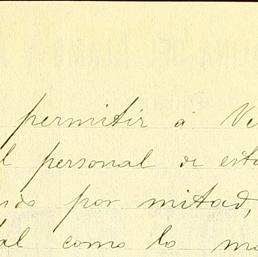 permitir á Ve
l personal de esta
por mitad,
tal como lo ma